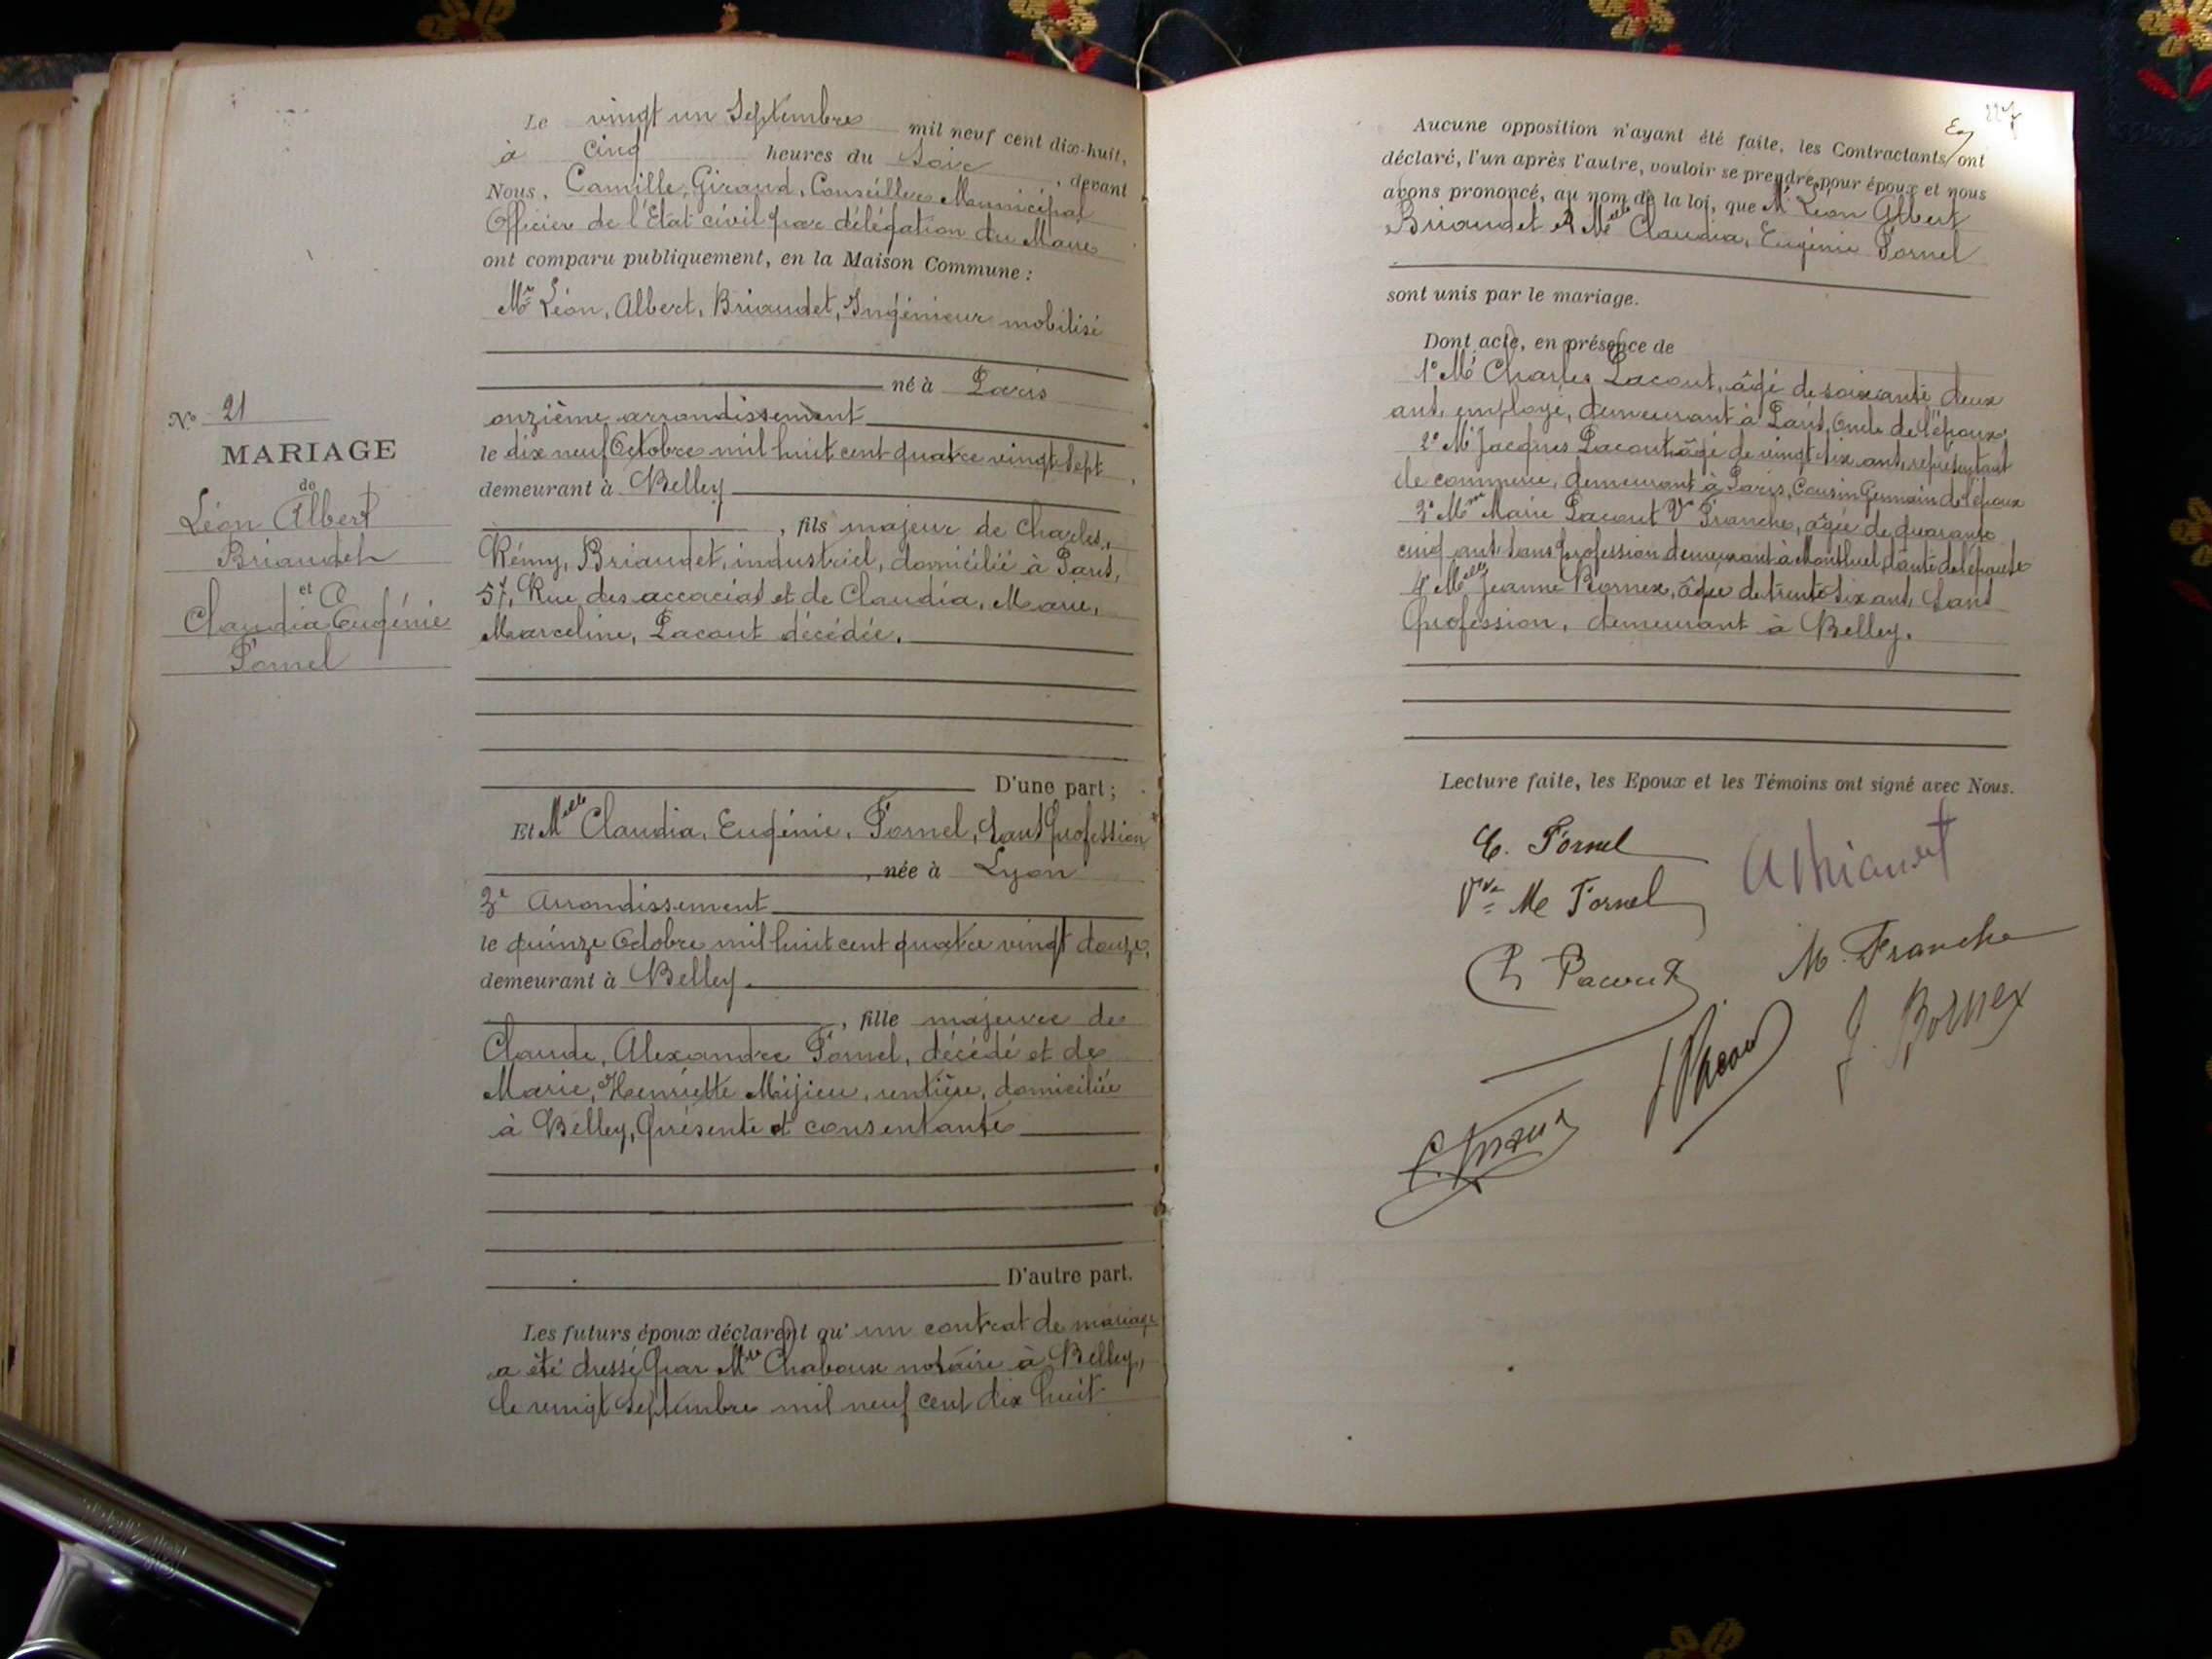 Le vingt un Septembre mil neuf cent dix-huit,
à cinq heures du Soir, devant
Nous, Camille, Giraud, Conseiller Municipal
Officier de l'Etat civil par délégation du Maire
ont comparu publiquement, en la Maison Commune :
Mr Léon, Albert, Briaudet, Ingénieur mobilisé
né à Paris
onzième arrondissement
le dix neuf Octobre mil huit cent quatre vingt sept
demeurant à Belley
, fils majeur de Charles,
Rémy, Briaudet, industriel, domicilié à Paris,
57, Rue des accacias et de Claudia, Marie,
Marceline, Pacout décédée.
D'une part ;
Et Melle Claudia, Eugénie, Fornel, Sans profession
, née à Lyon
3e Arrondissement
le quinze Octobre mil huit cent quatre vingt douze,
demeurant à Belley.
, fille majeure de
Claude, Alexandre Fornel, décédé et de
Marie, Henriette Mijieu, rentière, domiciliée
à Belley, présente et consentante
D'autre part.
Les futurs époux déclarent qu' un contrat de mariage
a été dressé par Me Chaboux notaire à Belley,
le vingt septembre mil neuf cent dix huit
N° 21
MARIAGE
de
Léon Albert
Briaudet
et
Claudia Eugénie
Fornel
Aucune opposition n'ayant été faite, les Contractants ont
déclaré, l'un après l'autre, vouloir se prendre pour époux et nous
avons prononcé, au nom de la loi, que Mr Léon Albert
Briaudet et Melle Claudia, Eugénie Fornel
sont unis par le mariage.
Dont acte, en présence de
1° Mr Charles Pacout, âgé de soixante deux
ans, employé, demeurant à Paris, Oncle de l'époux,
2° Mr Jacques Pacout âgé de vingt six ans, représentant
de commerce, demeurant à Paris, Cousin Germain de l'époux
3° Mme Marie Pacout Vve Franche, âgée de quarante
cinq ans, sans profession demeurant à Montluel, tante de l'époux
4° Melle Jeanne Bornex, âgée de trente six ans, Sans
profession, demeurant à Belley.
Lecture faite, les Epoux et les Témoins ont signé avec Nous.
C. Fornel
A Briaudet
Vve M Fornel
M. Franche
Ch Pacout
J. Bornex
J Pacout
C. Giraud